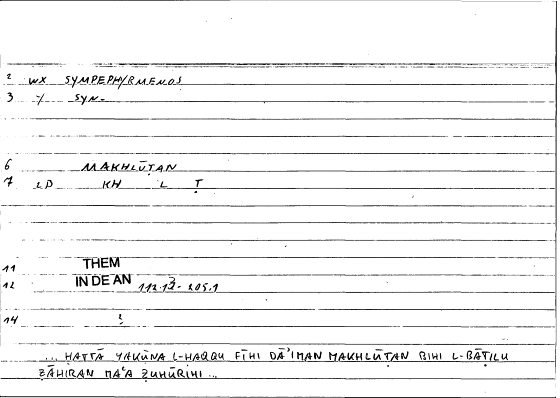 2 WX SYMPEPHYRMENOS
3 Y SYN-
6 MAKHLŪṬAN
7 LD KH L Ṭ
11 THEM
12 IN DE AN 112.13 - 205.1
14 2
... ḤATTĀ YAKŪNA L-ḤAQQU FĪHI DĀ'IMAN MAKHLŪṬAN BIHI L-BĀṬILU
ẒĀHIRAN MA'A ẒUHŪRIHI ...